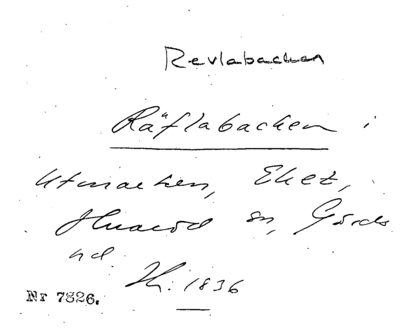 Revlabacken
Räflabacken i
Utmarken, Eket,
sn, Gärds
hd.
Lh. 1836
Nr 7326.